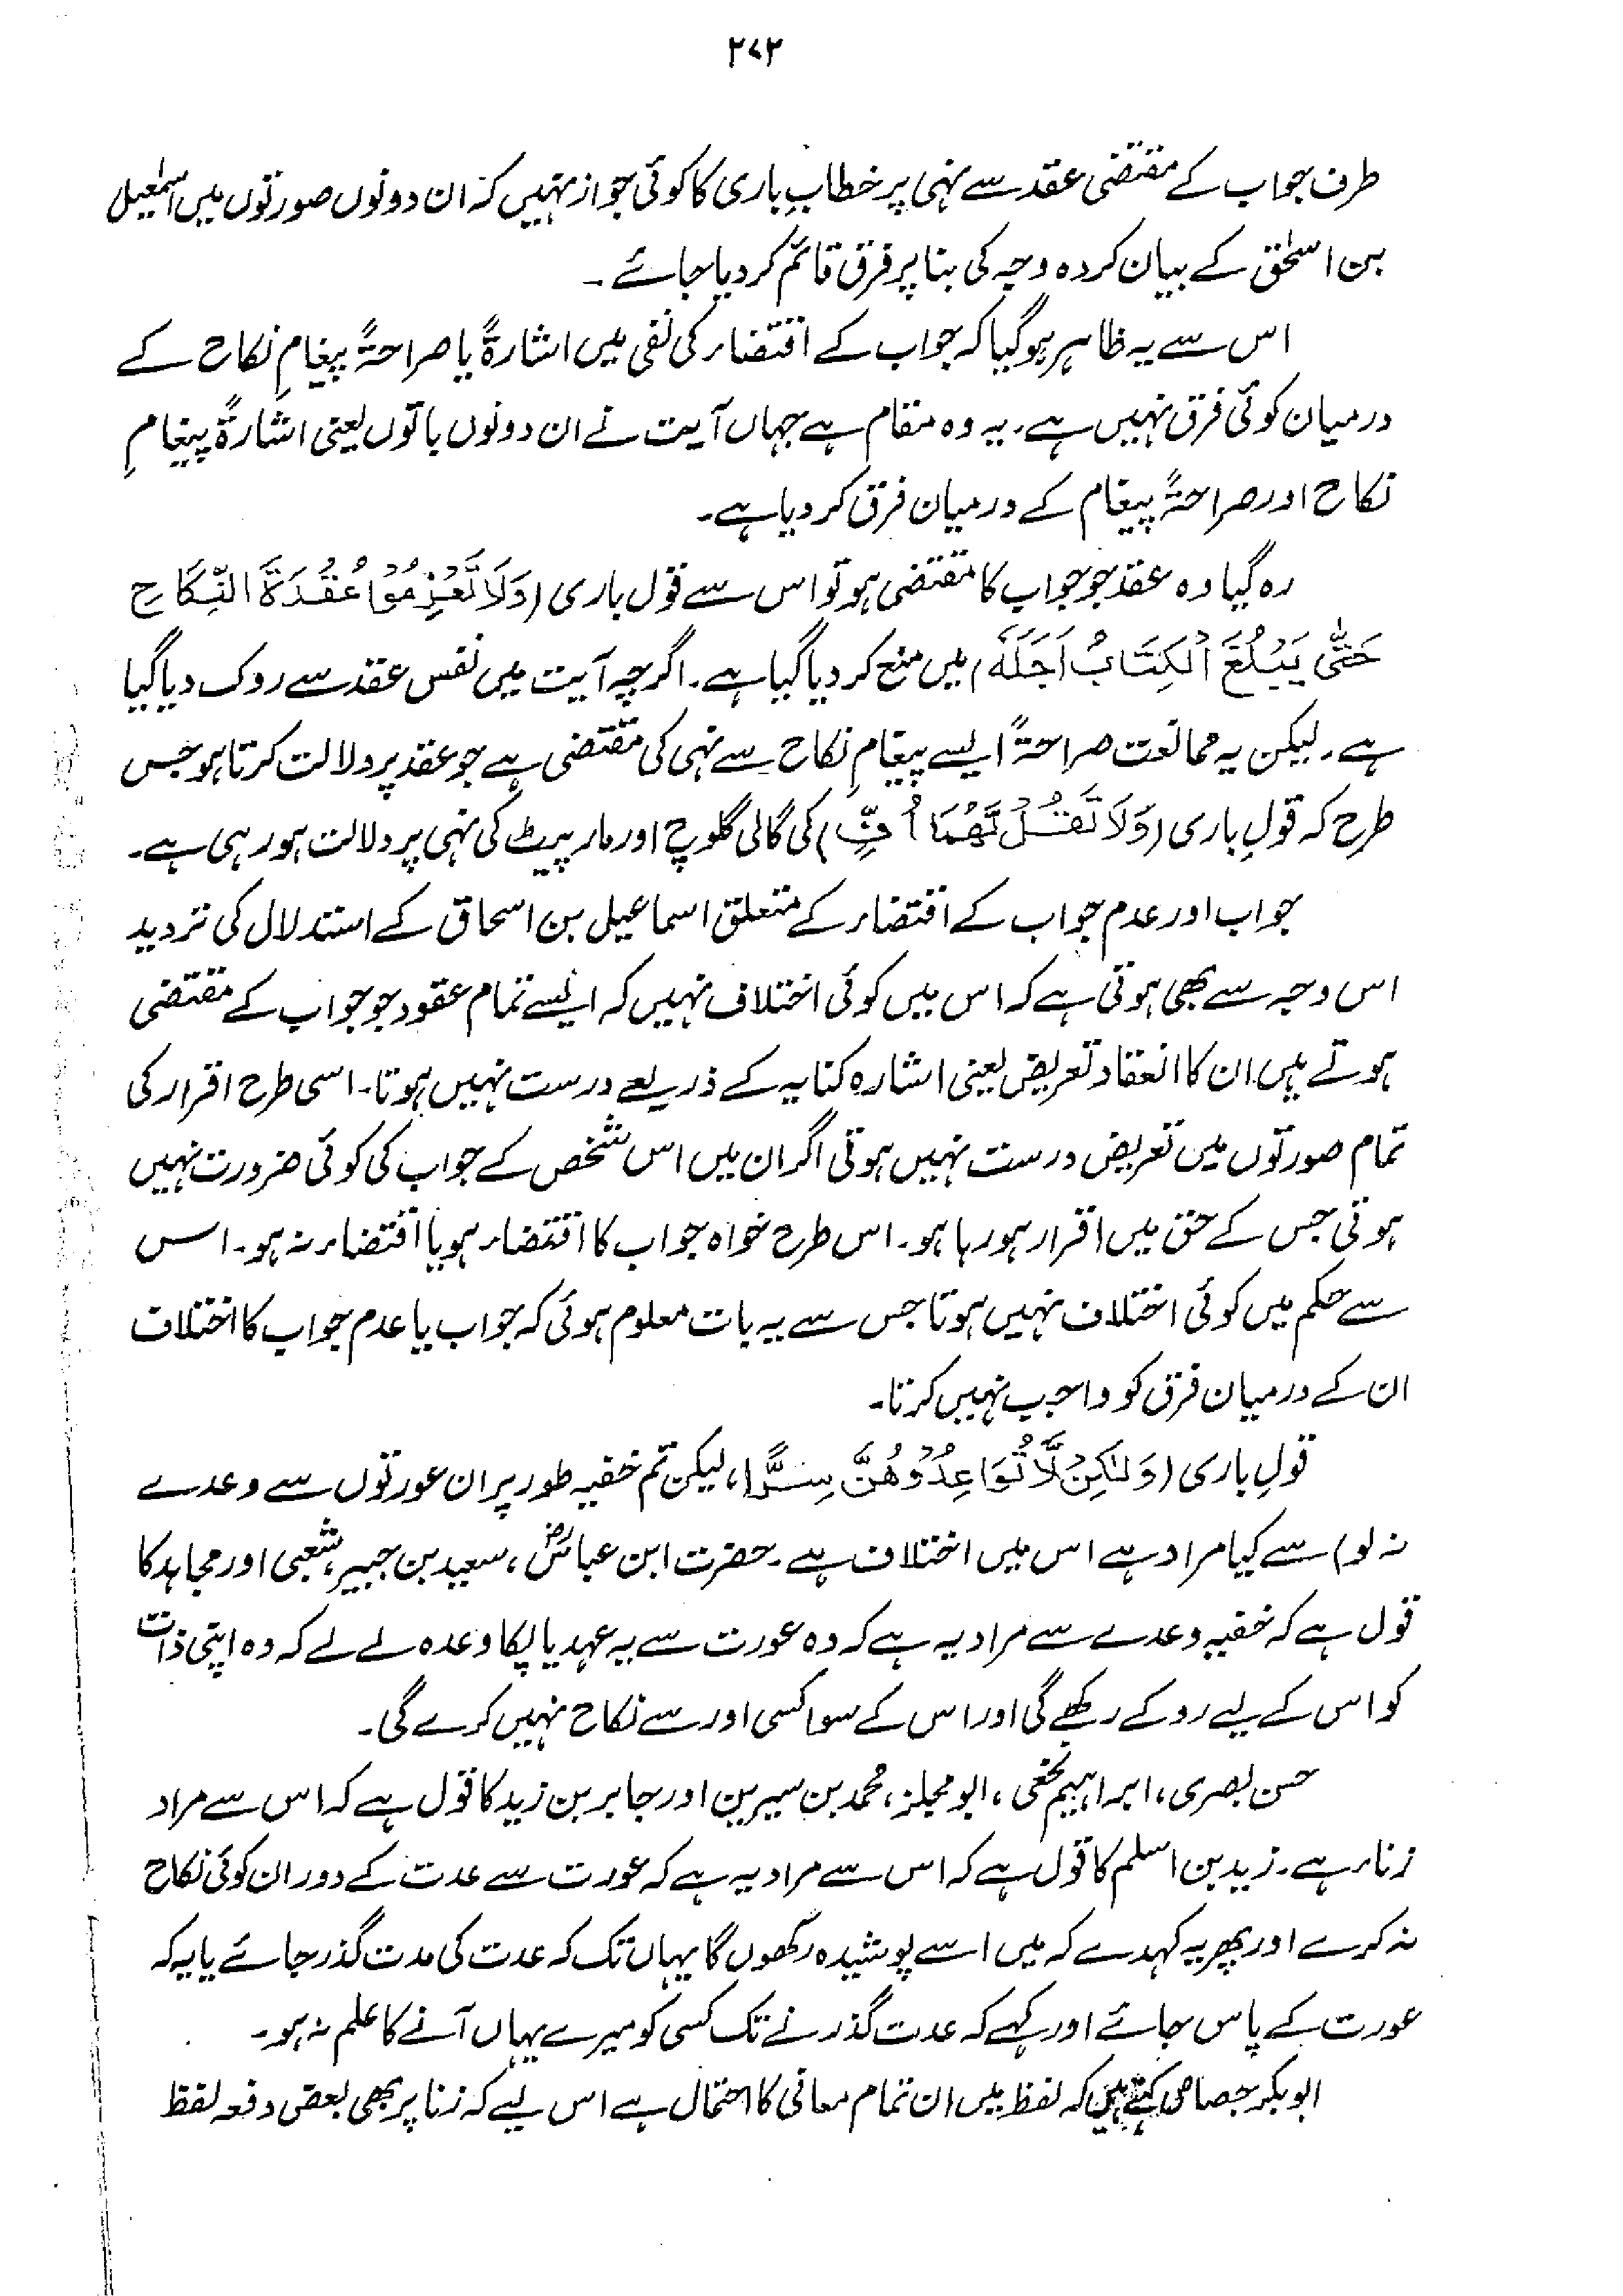 ۲۷۲
طرف جواب کے مقتضی عقد سے نہی پر خطابِ باری کا کوئی جواز نہیں کہ ان دونوں صورتوں میں اسمٰعیل
بن اسحٰق کے بیان کردہ وجہ کی بنا پر فرق قائم کر دیا جائے ۔
اس سے یہ ظاہر ہو گیا کہ جواب کے اقتضاء کی نفی میں اشارۃً یا صراحۃً پیغامِ نکاح کے
درمیان کوئی فرق نہیں ہے۔ یہ وہ مقام ہے جہاں آیت نے ان دونوں باتوں یعنی اشارۃً پیغامِ
نکاح اور صراحۃً پیغام کے درمیان فرق کر دیا ہے۔
رہ گیا وہ عقد جو جواب کا مقتضی ہو تو اس سے قول باری (وَلَا تَعْزِمُوْا عُقْدَةَ النِّكَاحِ
حَتّٰى يَبْلُغَ الْكِتَابُ اَجَلَهٗ) میں منع کر دیا گیا ہے۔ اگرچہ آیت میں نفس عقد سے روک دیا گیا
ہے۔ لیکن یہ ممانعت صراحۃً ایسے پیغامِ نکاح سے نہی کی مقتضی ہے جو عقد پر دلالت کرتا ہو جس
طرح کہ قولِ باری (وَلَا تَقُلْ لَّهُمَا اُفٍّ) کی گالی گلوچ اور مار پیٹ کی نہی پر دلالت ہو رہی ہے۔
جواب اور عدم جواب کے اقتضاء کے متعلق اسماعیل بن اسحاق کے استدلال کی تردید
اس وجہ سے بھی ہوتی ہے کہ اس میں کوئی اختلاف نہیں کہ ایسے تمام عقود جو جواب کے مقتضی
ہوتے ہیں ان کا انعقاد تعریض یعنی اشارہ کنایہ کے ذریعے درست نہیں ہوتا۔ اسی طرح اقرار کی
تمام صورتوں میں تعریض درست نہیں ہوتی اگر ان میں اس شخص کے جواب کی کوئی ضرورت نہیں
ہوتی جس کے حق میں اقرار ہو رہا ہو۔ اس طرح خواہ جواب کا اقتضاء ہو یا اقتضاء نہ ہو۔ اس
سے حکم میں کوئی اختلاف نہیں ہوتا جس سے یہ بات معلوم ہوئی کہ جواب یا عدم جواب کا اختلاف
ان کے درمیان فرق کو واجب نہیں کرتا۔
قولِ باری (وَلٰكِنْ لَّا تُوَاعِدُوْهُنَّ سِرًّا، لیکن تم خفیہ طور پر ان عورتوں سے وعدے
نہ لو) سے کیا مراد ہے اس میں اختلاف ہے۔ حضرت ابن عباسؓ، سعید بن جبیر، شعبی اور مجاہد کا
قول ہے کہ خفیہ وعدے سے مراد یہ ہے کہ وہ عورت سے یہ عہد یا پکا وعدہ لے لے کہ وہ اپنی ذات
کو اس کے لیے روکے رکھے گی اور اس کے سوا کسی اور سے نکاح نہیں کرے گی۔
حسن بصری، ابراہیم نخعی، ابو مجلز، محمد بن سیرین اور جابر بن زید کا قول ہے کہ اس سے مراد
زناء ہے۔ زید بن اسلم کا قول ہے کہ اس سے مراد یہ ہے کہ عورت سے عدت کے دوران کوئی نکاح
نہ کرے اور پھر یہ کہدے کہ میں اسے پوشیدہ رکھوں گا یہاں تک کہ عدت کی مدت گذر جائے یا یہ کہ
عورت کے پاس جائے اور کہے کہ عدت گذرنے تک کسی کو میرے یہاں آنے کا علم نہ ہو۔
ابو بکر جصاص کہتے ہیں کہ لفظ میں ان تمام معانی کا احتمال ہے اس لیے کہ زنا پر بھی بعض دفعہ لفظ